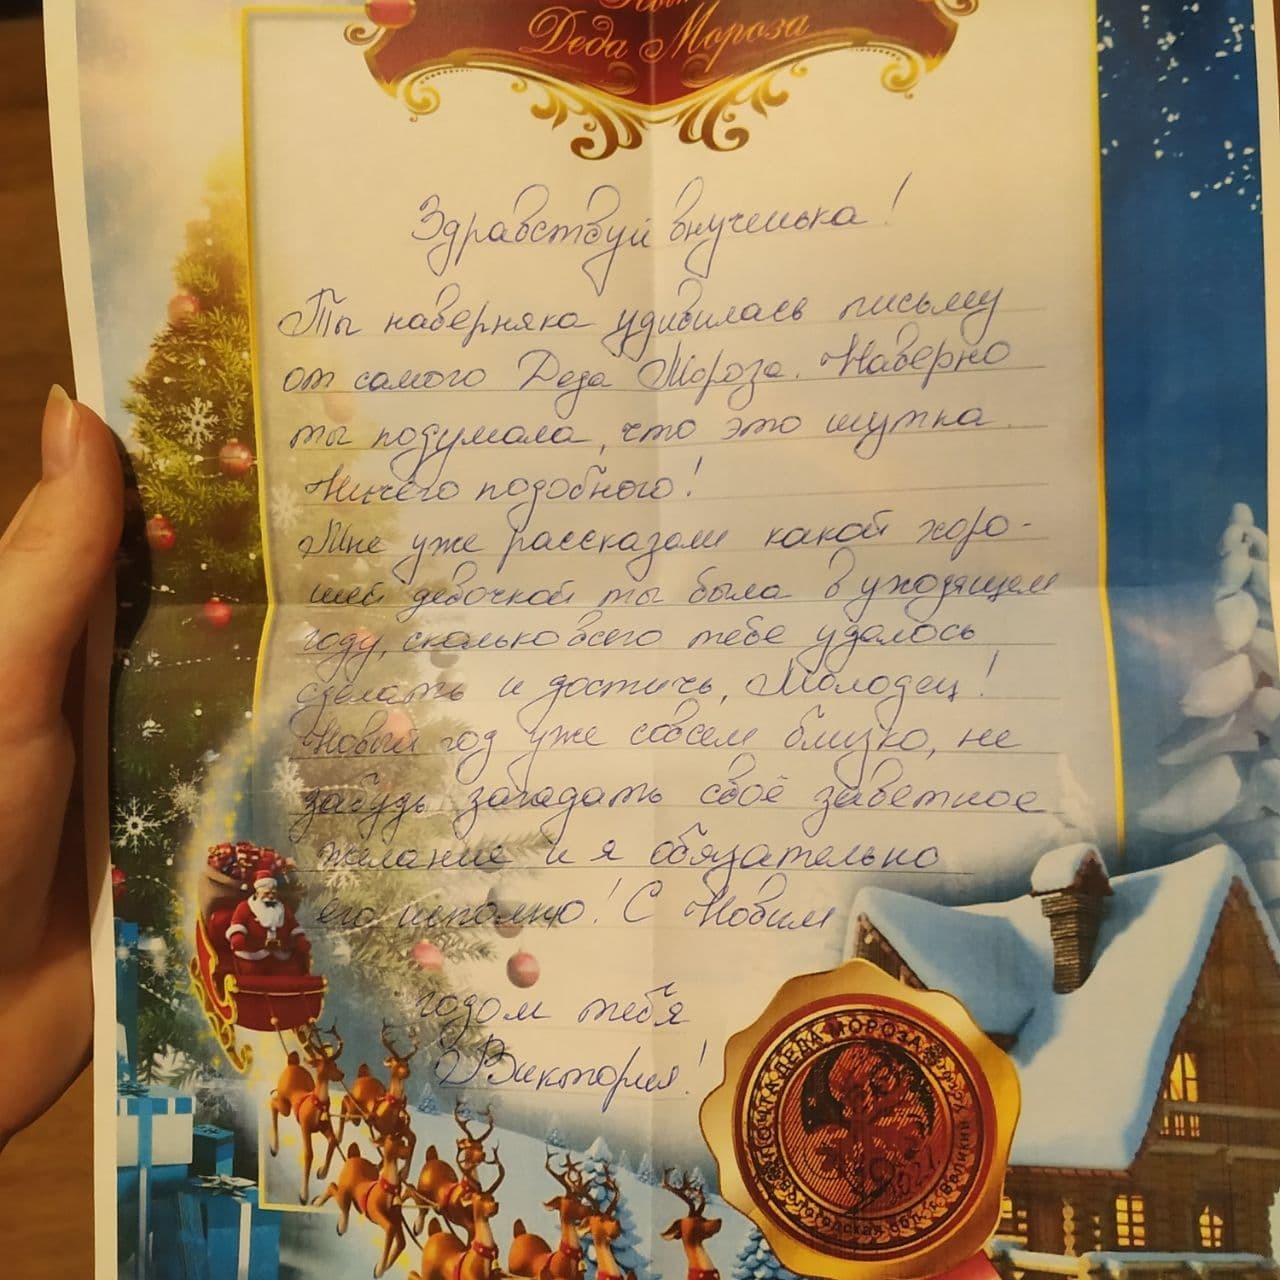 Деда Мороза
Здравствуй внученька!
Ты наверняка удивилась письму
от самого Деда Мороза. Наверно
ты подумала, что это шутка
Ничего подобного!
Мне уже рассказали какой хоро-
шей девочкой ты была в уходящем
году, сколько всего тебе удалось
сделать и достичь, Молодец!
Новый год уже совсем близко, не
забудь загадать своё заветное
желание и я обязательно
его исполню! С Новым
годом тебя
Виктория!
ПОЧТА ДЕДА МОРОЗА
Вологодская обл. г. Великий Устюг